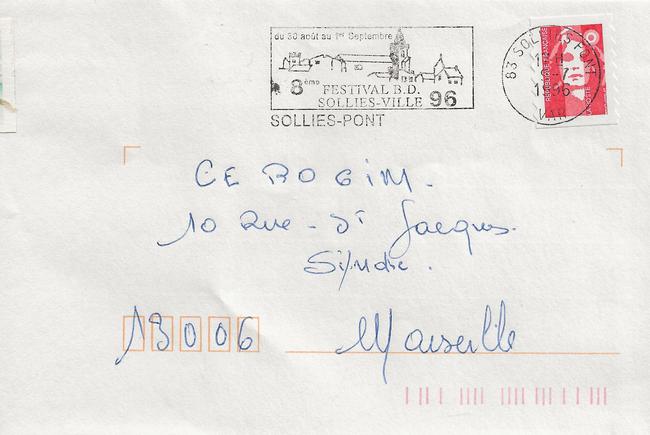 du 30 août au 1er Septembre
8ème FESTIVAL B.D.
SOLLIES-VILLE 96
SOLLIES-PONT
83 SOLLIES-PONT
1996
VAR
RÉPUBLIQUE FRANÇAISE
CEROGIM.
10 Rue - St Jacques.
Syndic.
13006 Marseille